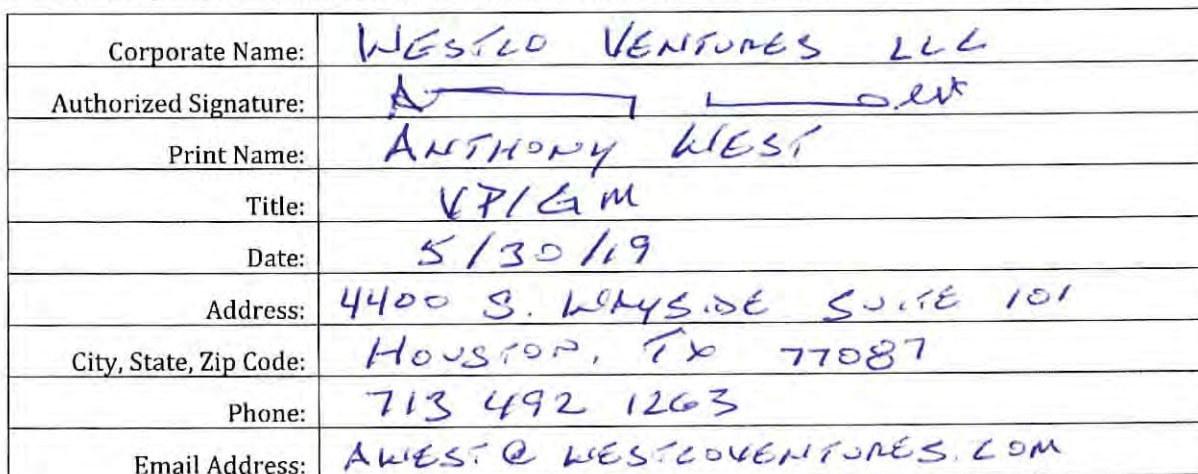 Corporate Name: WESTCO VENTURES LLC
Authorized Signature:
Print Name: ANTHONY WEST
Title: VP/GM
Date: 5/30/19
Address: 4400 S. WAYSIDE SUITE 101
City, State, Zip Code: HOUSTON, TX 77087
Phone: 713 492 1263
Email Address: AWEST@WESTCOVENTURES.COM